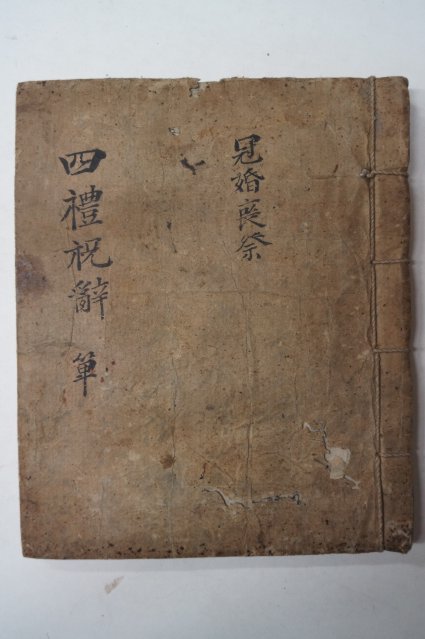 冠婚喪祭
四禮祝辭 單